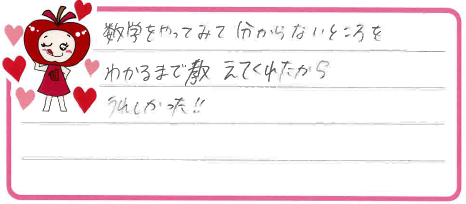 数学をやってみて分からないところを
わかるまで教えてくれたから
うれしかった!!